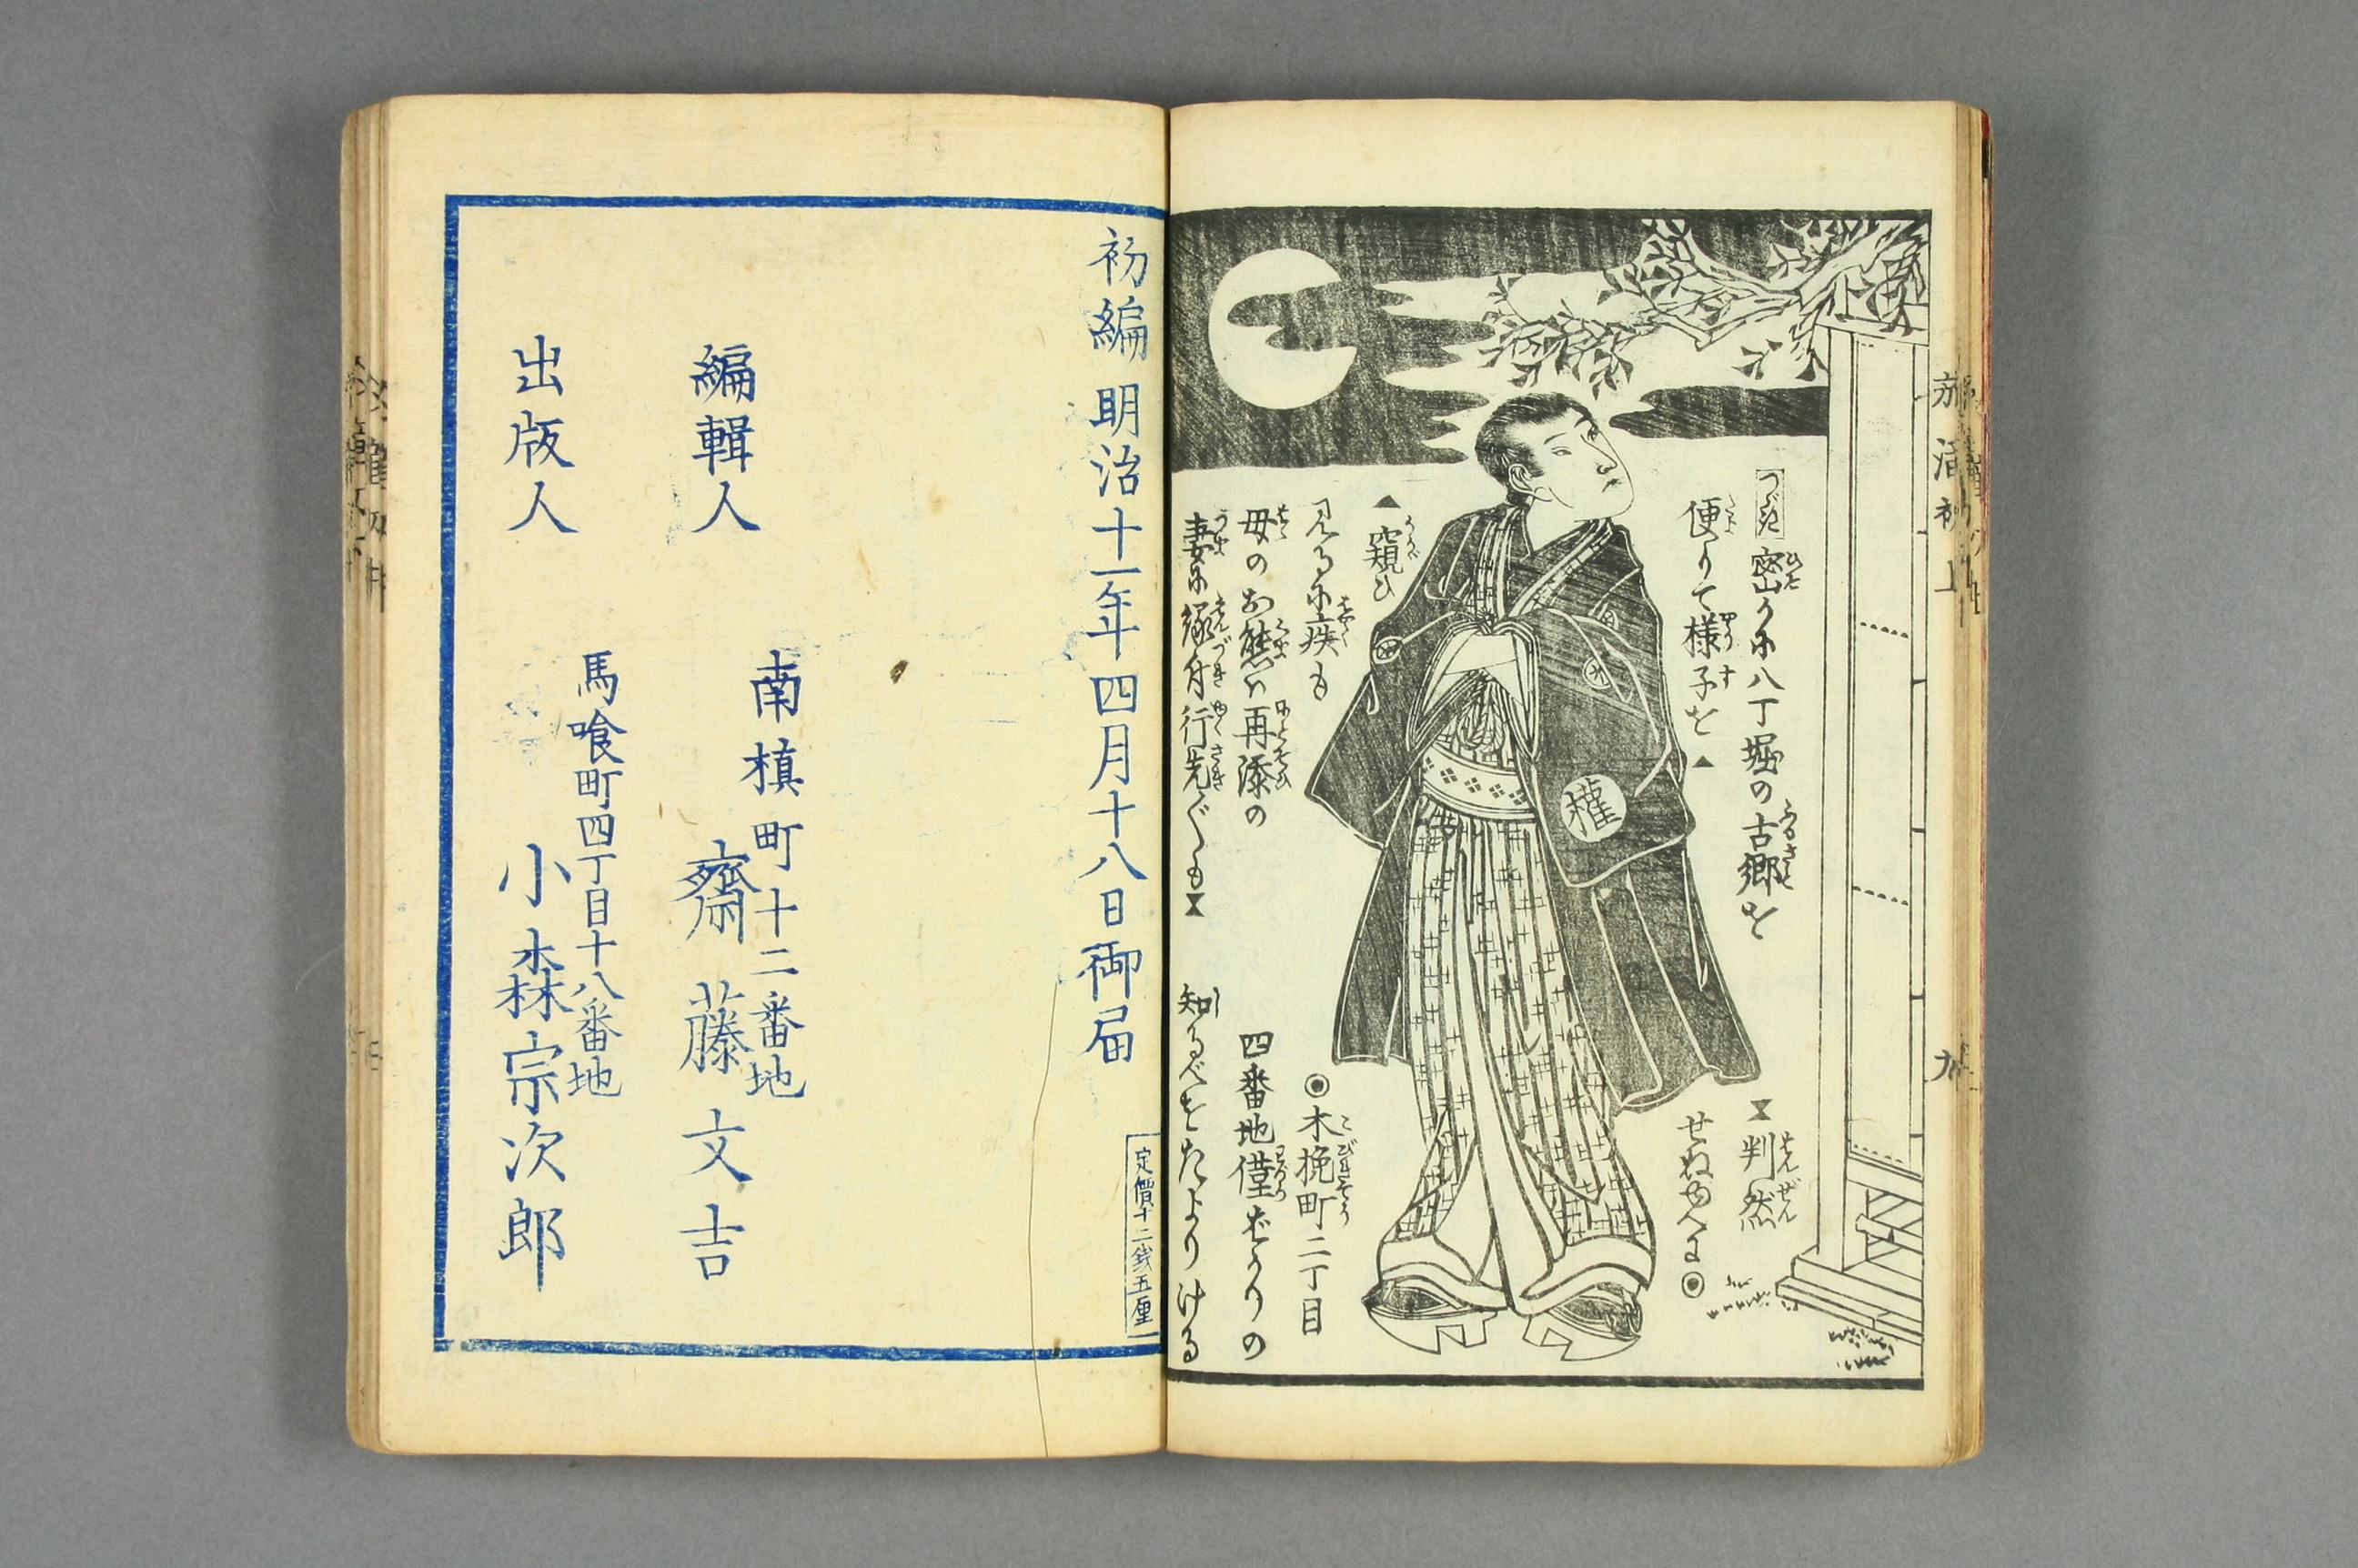 つゞき 密かに八丁堀の古郷を
便りて様子を▲
▲窺ひ
見るに疾も
母のお熊ハ再添の
妻に縁付行先ぐも
判然
せねゆへに◉
◉木挽町二丁目
四番地僅ばかりの
知るべをたよりける
權
初編 明治十一年四月十八日御届
定價十二銭五厘
南槙町十二番地
編輯人 齋藤文吉
馬喰町四丁目十八番地
出版人 小森宗次郎